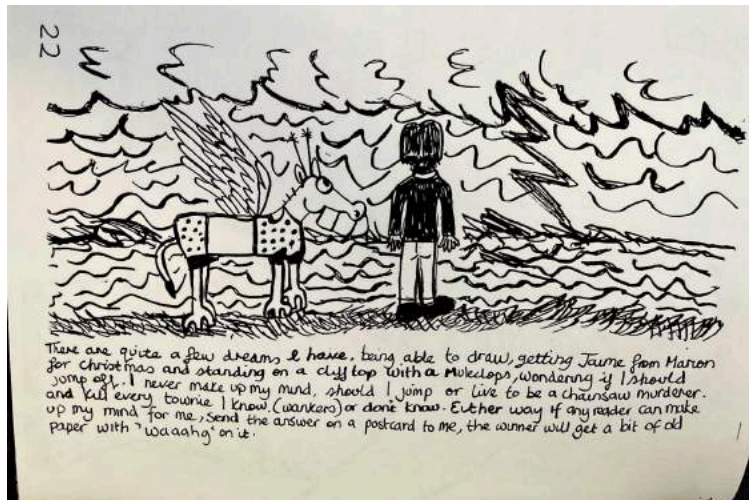 22
There are quite a few dreams I have, being able to draw, getting Jaume from Marion
for christmas and standing on a cliff top with a Muleclops, wondering if I should
jump off. I never make up my mind, should I jump or live to be a chainsaw murderer.
and kill every townie I know. (wankers) or don't know. Either way if any reader can make
up my mind for me, send the answer on a postcard to me, the winner will get a bit of old
paper with 'waaahg' on it.